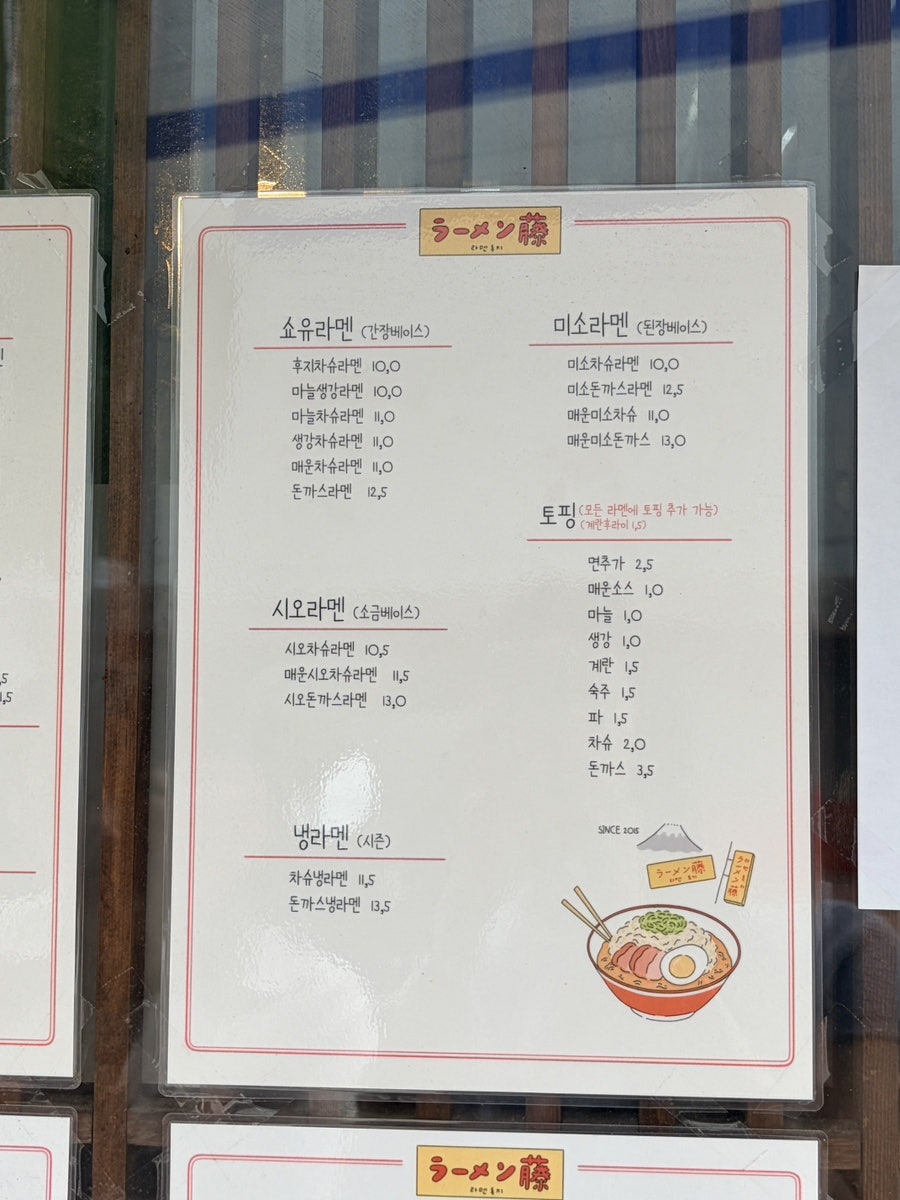 ラーメン藤
라멘 후지
쇼유라멘 (간장베이스)
후지차슈라멘 10,0
마늘생강라멘 10,0
마늘차슈라멘 11,0
생강차슈라멘 11,0
매운차슈라멘 11,0
돈까스라멘 12,5
시오라멘 (소금베이스)
시오차슈라멘 10,5
매운시오차슈라멘 11,5
시오돈까스라멘 13,0
냉라멘 (시즌)
차슈냉라멘 11,5
돈까스냉라멘 13,5
미소라멘 (된장베이스)
미소차슈라멘 10,0
미소돈까스라멘 12,5
매운미소차슈 11,0
매운미소돈까스 13,0
토핑 (모든 라멘에 토핑 추가 가능)
(계란후라이 1,5)
면추가 2,5
매운소스 1,0
마늘 1,0
생강 1,0
계란 1,5
숙주 1,5
파 1,5
차슈 2,0
돈까스 3,5
SINCE 2015
ラーメン藤
라멘 후지
ラーメン藤
ラーメン藤
라멘 후지